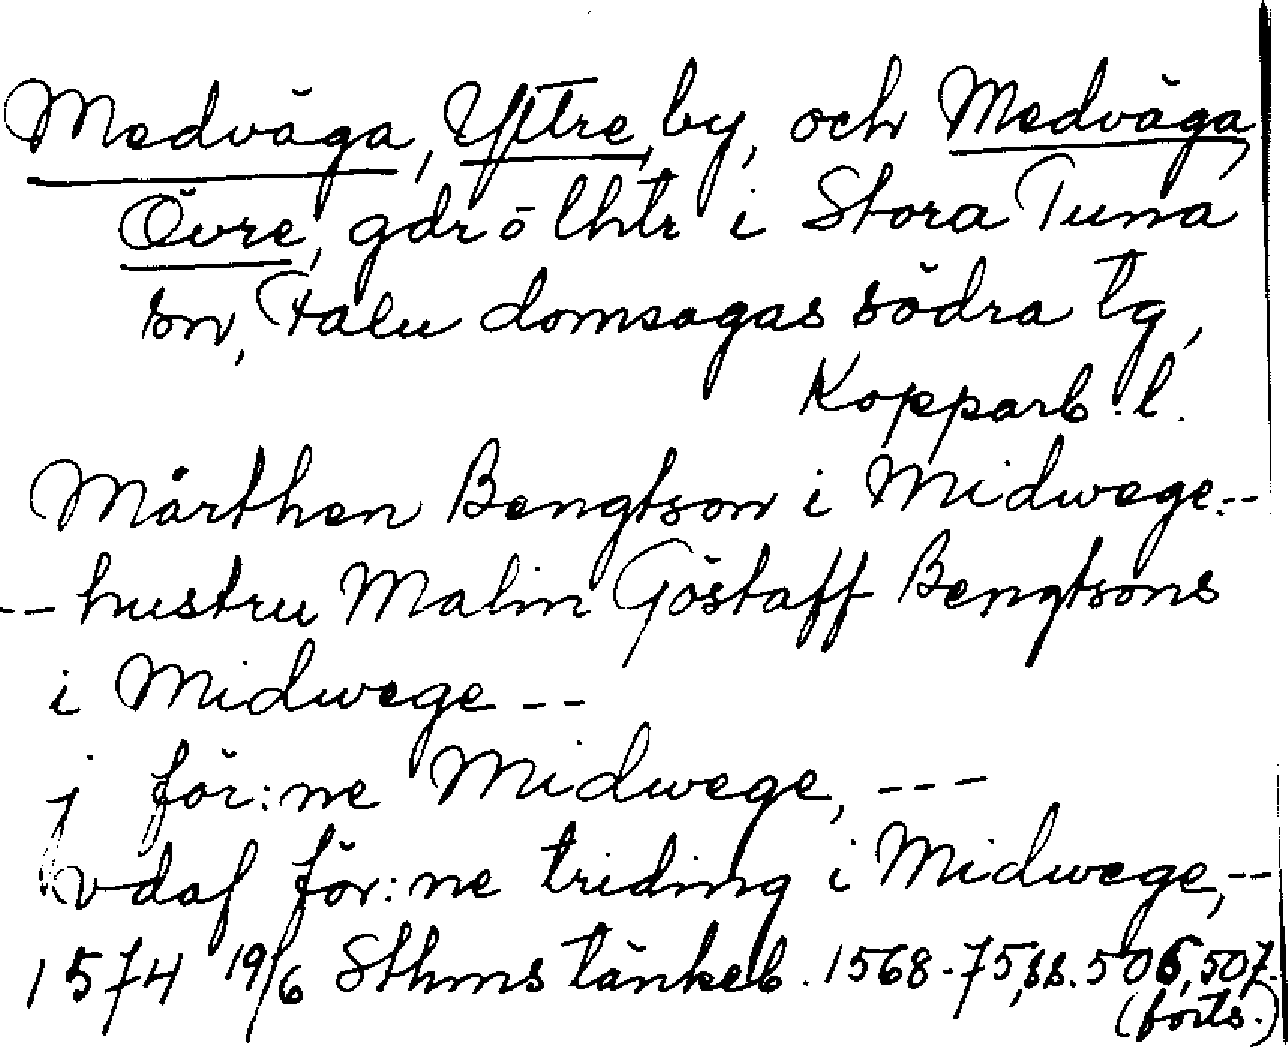 Medväga, Yttre, by, och Medväga,
Övre, gdr o lhtr i Stora Tuna
sn, Falu domsagas södra tg,
Kopparb. l.
Mårthen Bengtson i Midwege.--
-- hustru Malin Göstaff Bengtsons
i Midwege --
j för:ne Midwege, ---
vdaf för:ne triding i Midwege, --
1574 19/6 Sthms tänkeb. 1568-75, ss. 506, 507.
(forts.)